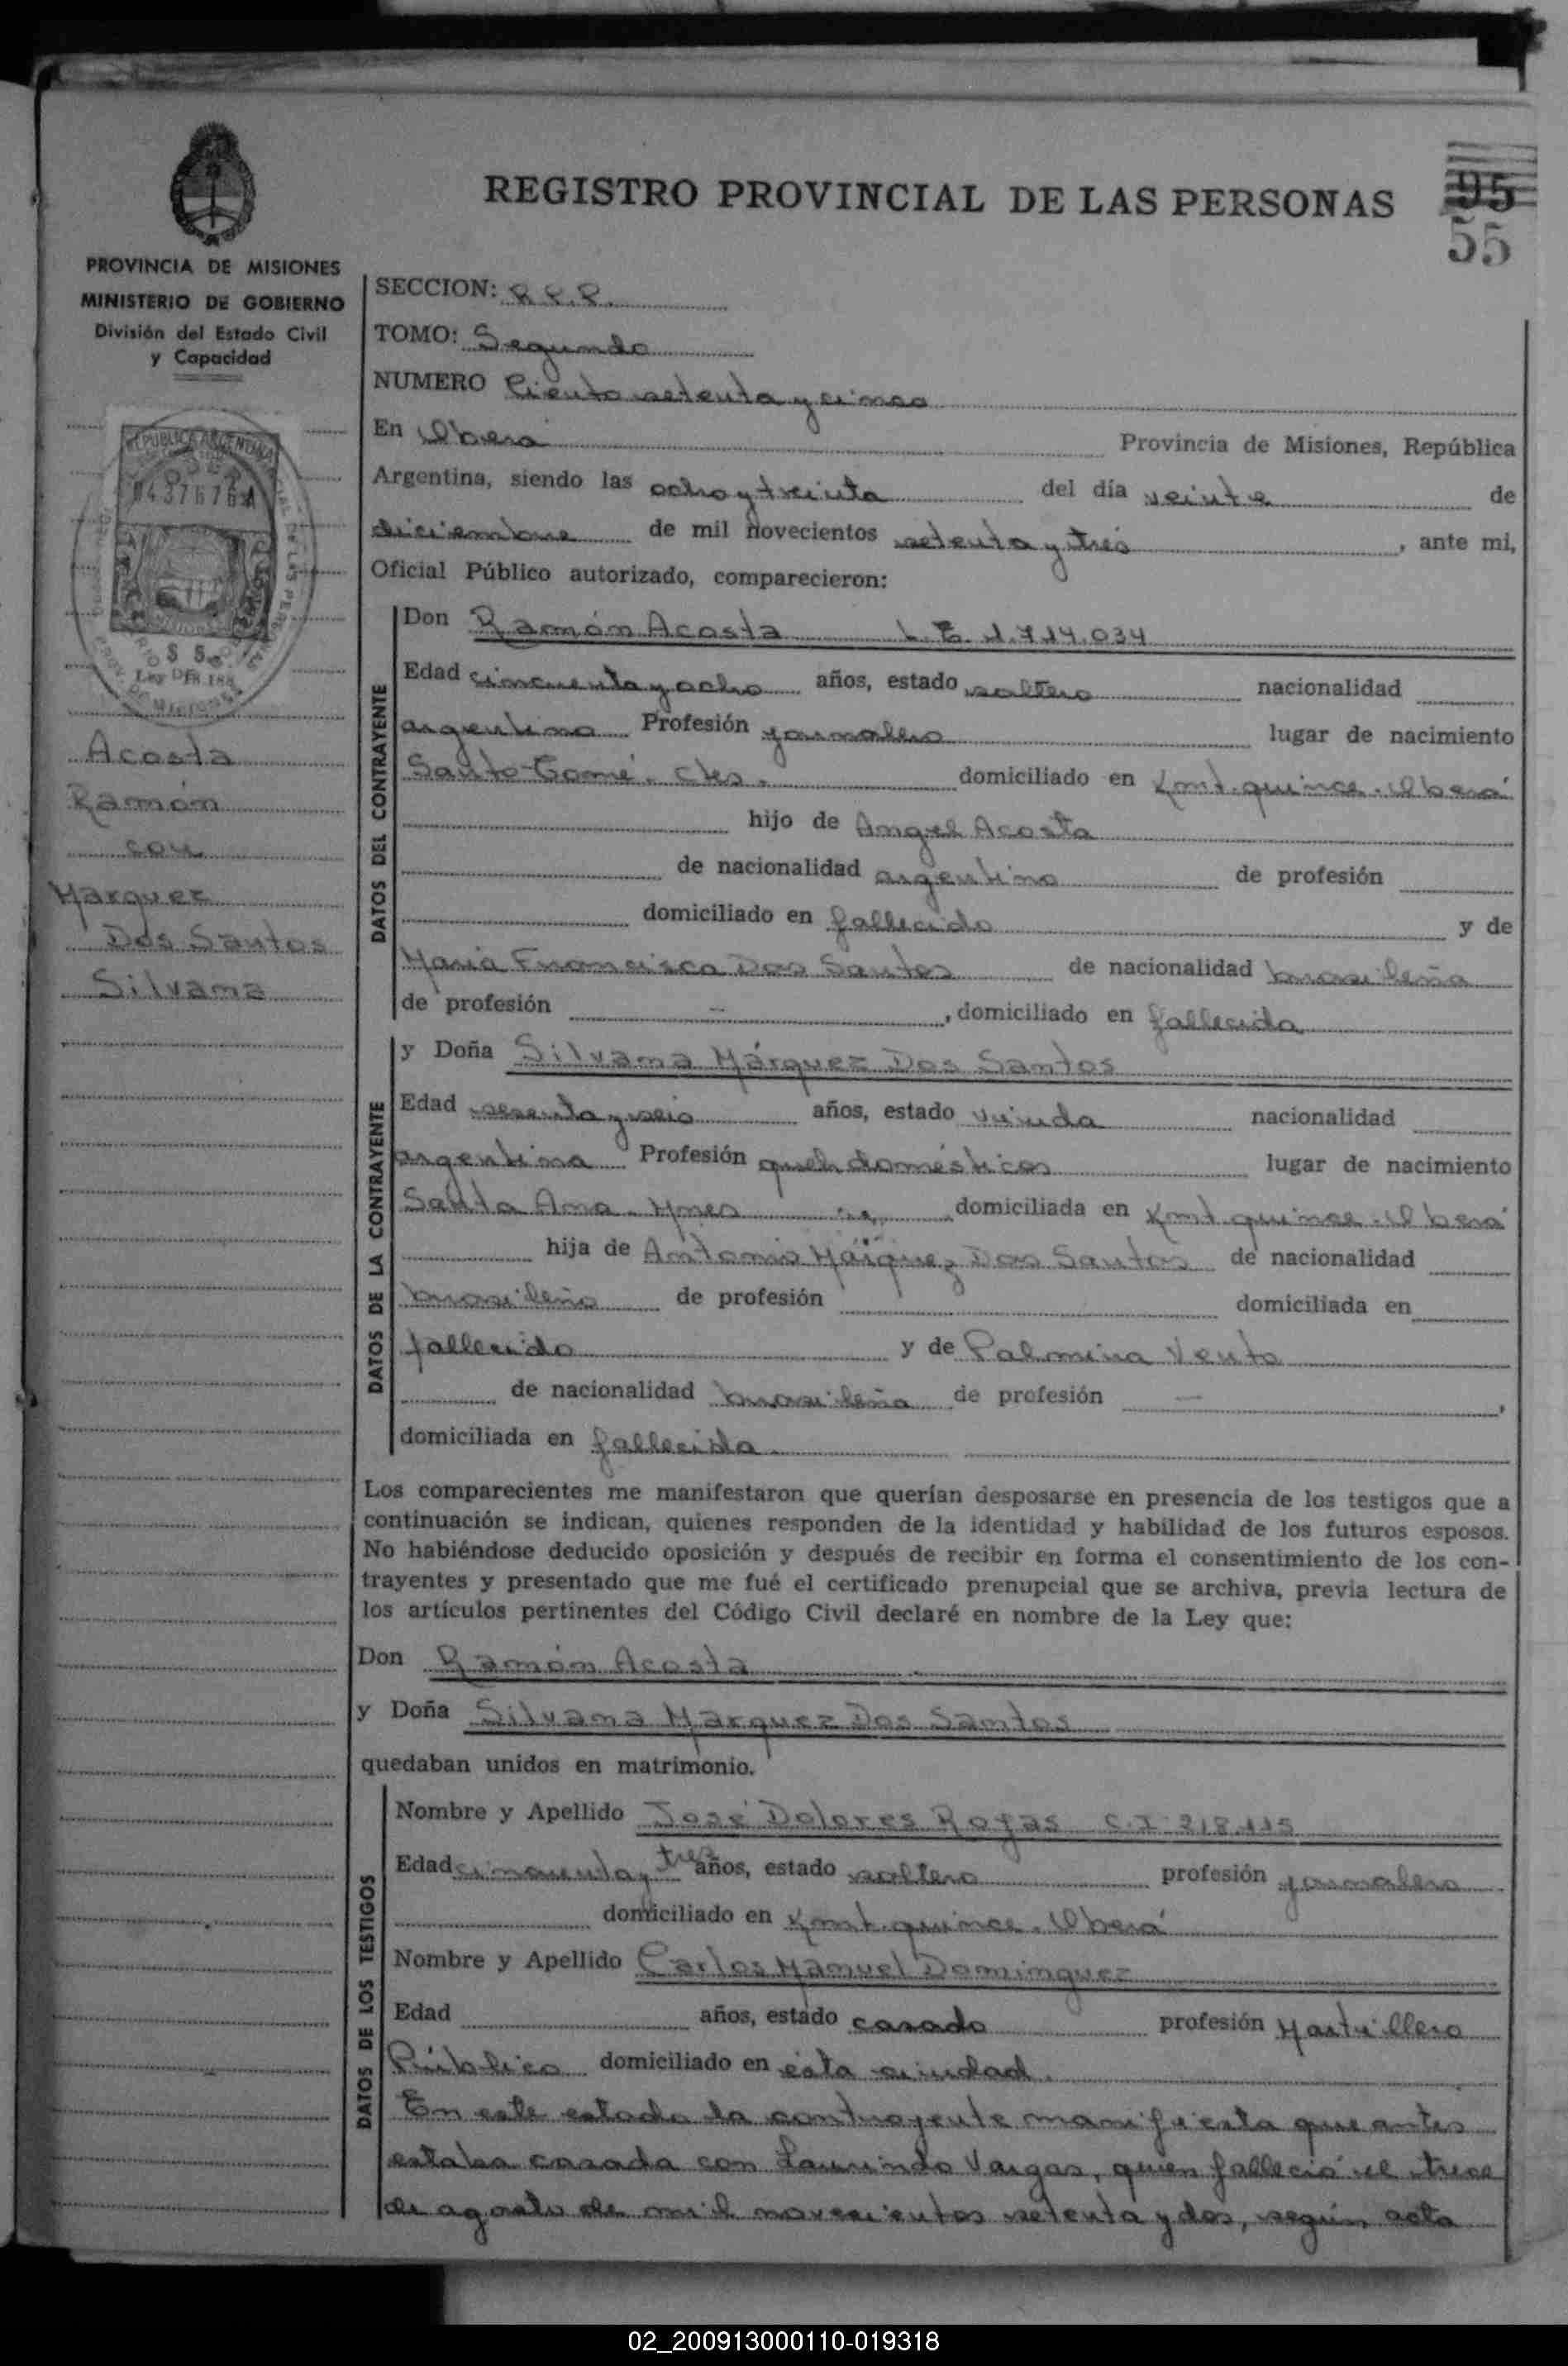 REGISTRO PROVINCIAL DE LAS PERSONAS
95
55
PROVINCIA DE MISIONES
MINISTERIO DE GOBIERNO
División del Estado Civil
y Capacidad
REPUBLICA ARGENTINA
$ 5
Acosta
Ramón
con
Marquez
Dos Santos
Silvana
SECCION: R.P.P.
TOMO: Segundo
NUMERO Ciento setenta y cinco
En Oberá Provincia de Misiones, República
Argentina, siendo las ocho y treinta del día veinte de
diciembre de mil novecientos setenta y tres, ante mi,
Oficial Público autorizado, comparecieron:
DATOS DEL CONTRAYENTE
Don Ramón Acosta L.E. 1.714.034
Edad cincuenta y ocho años, estado soltero nacionalidad
argentino Profesión jornalero lugar de nacimiento
Santo Tomé. Ctes. domiciliado en Kmt. quince. Oberá
hijo de Angel Acosta
de nacionalidad argentino de profesión
domiciliado en fallecido y de
Maria Francisca Dos Santos de nacionalidad brasileña
de profesión - , domiciliado en fallecida
DATOS DE LA CONTRAYENTE
y Doña Silvana Márquez Dos Santos
Edad sesenta y seis años, estado viuda nacionalidad
argentina Profesión queh. domésticos lugar de nacimiento
Santa Ana. Mnes domiciliada en Kmt. quince. Oberá
hija de Antonio Márquez Dos Santos de nacionalidad
brasileño de profesión domiciliada en
fallecido y de Palmira Vento
de nacionalidad brasileña de profesión — ,
domiciliada en fallecida.
Los comparecientes me manifestaron que querían desposarse en presencia de los testigos que a
continuación se indican, quienes responden de la identidad y habilidad de los futuros esposos.
No habiéndose deducido oposición y después de recibir en forma el consentimiento de los con-
trayentes y presentado que me fué el certificado prenupcial que se archiva, previa lectura de
los artículos pertinentes del Código Civil declaré en nombre de la Ley que:
Don Ramón Acosta
y Doña Silvana Marquez Dos Santos
quedaban unidos en matrimonio.
DATOS DE LOS TESTIGOS
Nombre y Apellido José Dolores Rojas C.I 218.115
Edad cincuenta y tres años, estado soltero profesión jornalero
domiciliado en Kmt. quince. Oberá
Nombre y Apellido Carlos Manuel Dominguez
Edad años, estado casado profesión Martillero
Público domiciliado en ésta ciudad.
En este estado la contrayente manifiesta que antes
estaba casada con Laurindo Vargas, quien falleció el trece
de agosto de mil novecientos setenta y dos, según acta
02_200913000110-019318